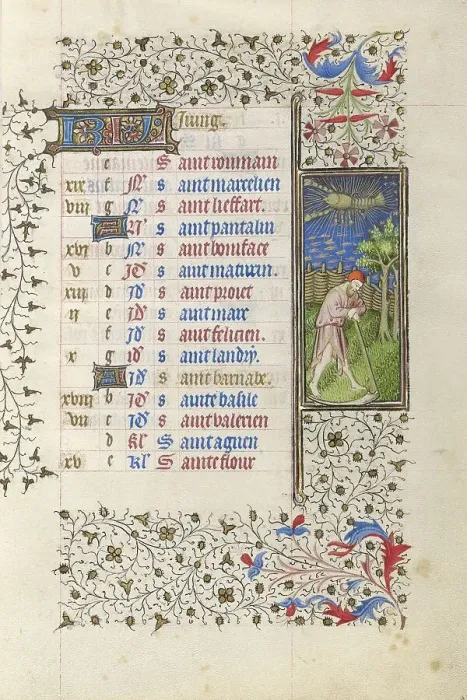 Juing.
e S aint roumain
xix f N s aint marcelien
viii g N s aint lieffart.
A N s aint pantalin
xvi b N s aint boniface
v c Id s aint maturin.
xiii d Id s aint prouet
ii e Id s aint marc
f Id s aint felicien.
x g Id s aint landry.
A Id s aint barnabe.
xviii b Id s ainte basile
vii c Id s aint valerien
d kl S aint aguen
xv e kl S ainte flour